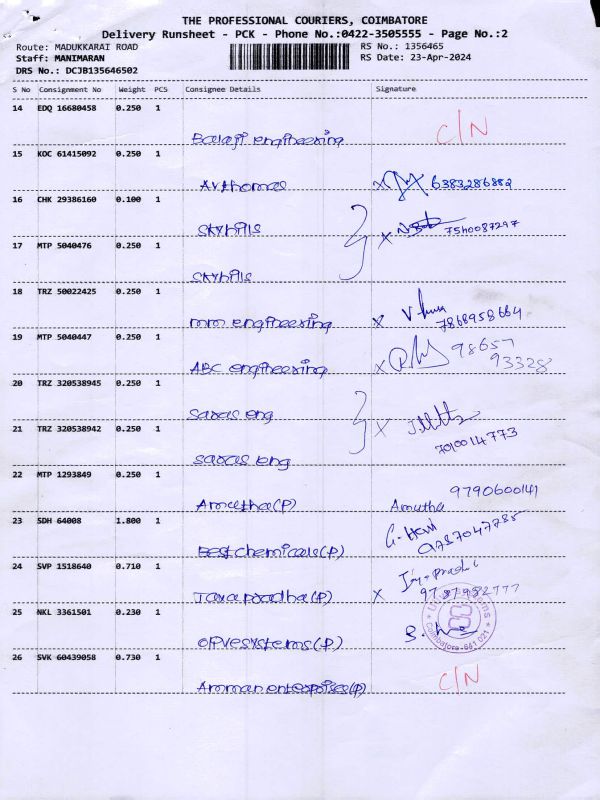 THE PROFESSIONAL COURIERS, COIMBATORE
Delivery Runsheet - PCK - Phone No.:0422-3505555 - Page No.:2
Route: MADUKKARAI ROAD RS No.: 1356465
Staff: MANIMARAN RS Date: 23-Apr-2024
DRS No.: DCJB135646502
S No Consignment No Weight PCS Consignee Details Signature
14 EDQ 16680458 0.250 1
Balaji engineering C/N
15 KOC 61415092 0.250 1
AVThomas X 6383286882
16 CHK 29386160 0.100 1
skyhills X 7540087297
17 MTP 5040476 0.250 1
skyhills
18 TRZ 50022425 0.250 1
mm engineering X 7868958664
19 MTP 5040447 0.250 1
ABC engineering X 98657
93328
20 TRZ 320538945 0.250 1
saras eng X
21 TRZ 320538942 0.250 1 7010014773
saras eng
22 MTP 1293849 0.250 1 9790600141
Amutha(P) Amutha
23 SDH 64008 1.800 1
Best chemicals(P) 9787047785
24 SVP 1518640 0.710 1
(P) X 9787982777
25 NKL 3361501 0.230 1
systems(P) Coimbatore-641 021
26 SVK 60439058 0.730 1
Amman enterprises(P) C/N